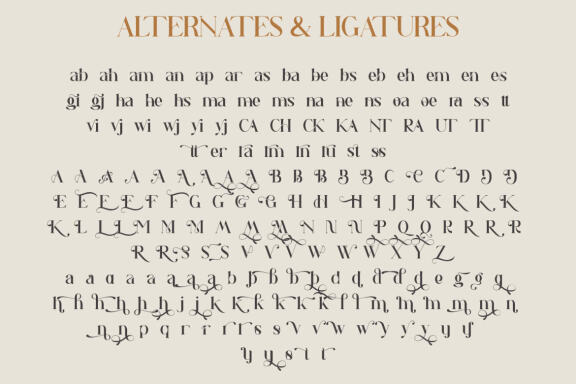 ALTERNATES & LIGATURES
ab ah am an ap ar as ba be bs eb eh em en es
gi gj ha he hs ma me ms na ne ns oa oe ra ss tt
vi vj wi wj yi yj CA CH CK KA NT RA UT TT
tt er ra rm rn ru st ss
A A A A A A A A B B B B B C C D D D
E E E E E F F G G G G H H H I J J K K K K
K L L L M M M M M M N N U U P Q Q R R R R
R R S S S V V V W W W X Y Z
a a a a a a a a b b b b b d d d d d e g g g
h h h h h h h i j j k k k k k l l m m m m m n
n n p q r r r r s s v v w w y y y y y
y y s t t